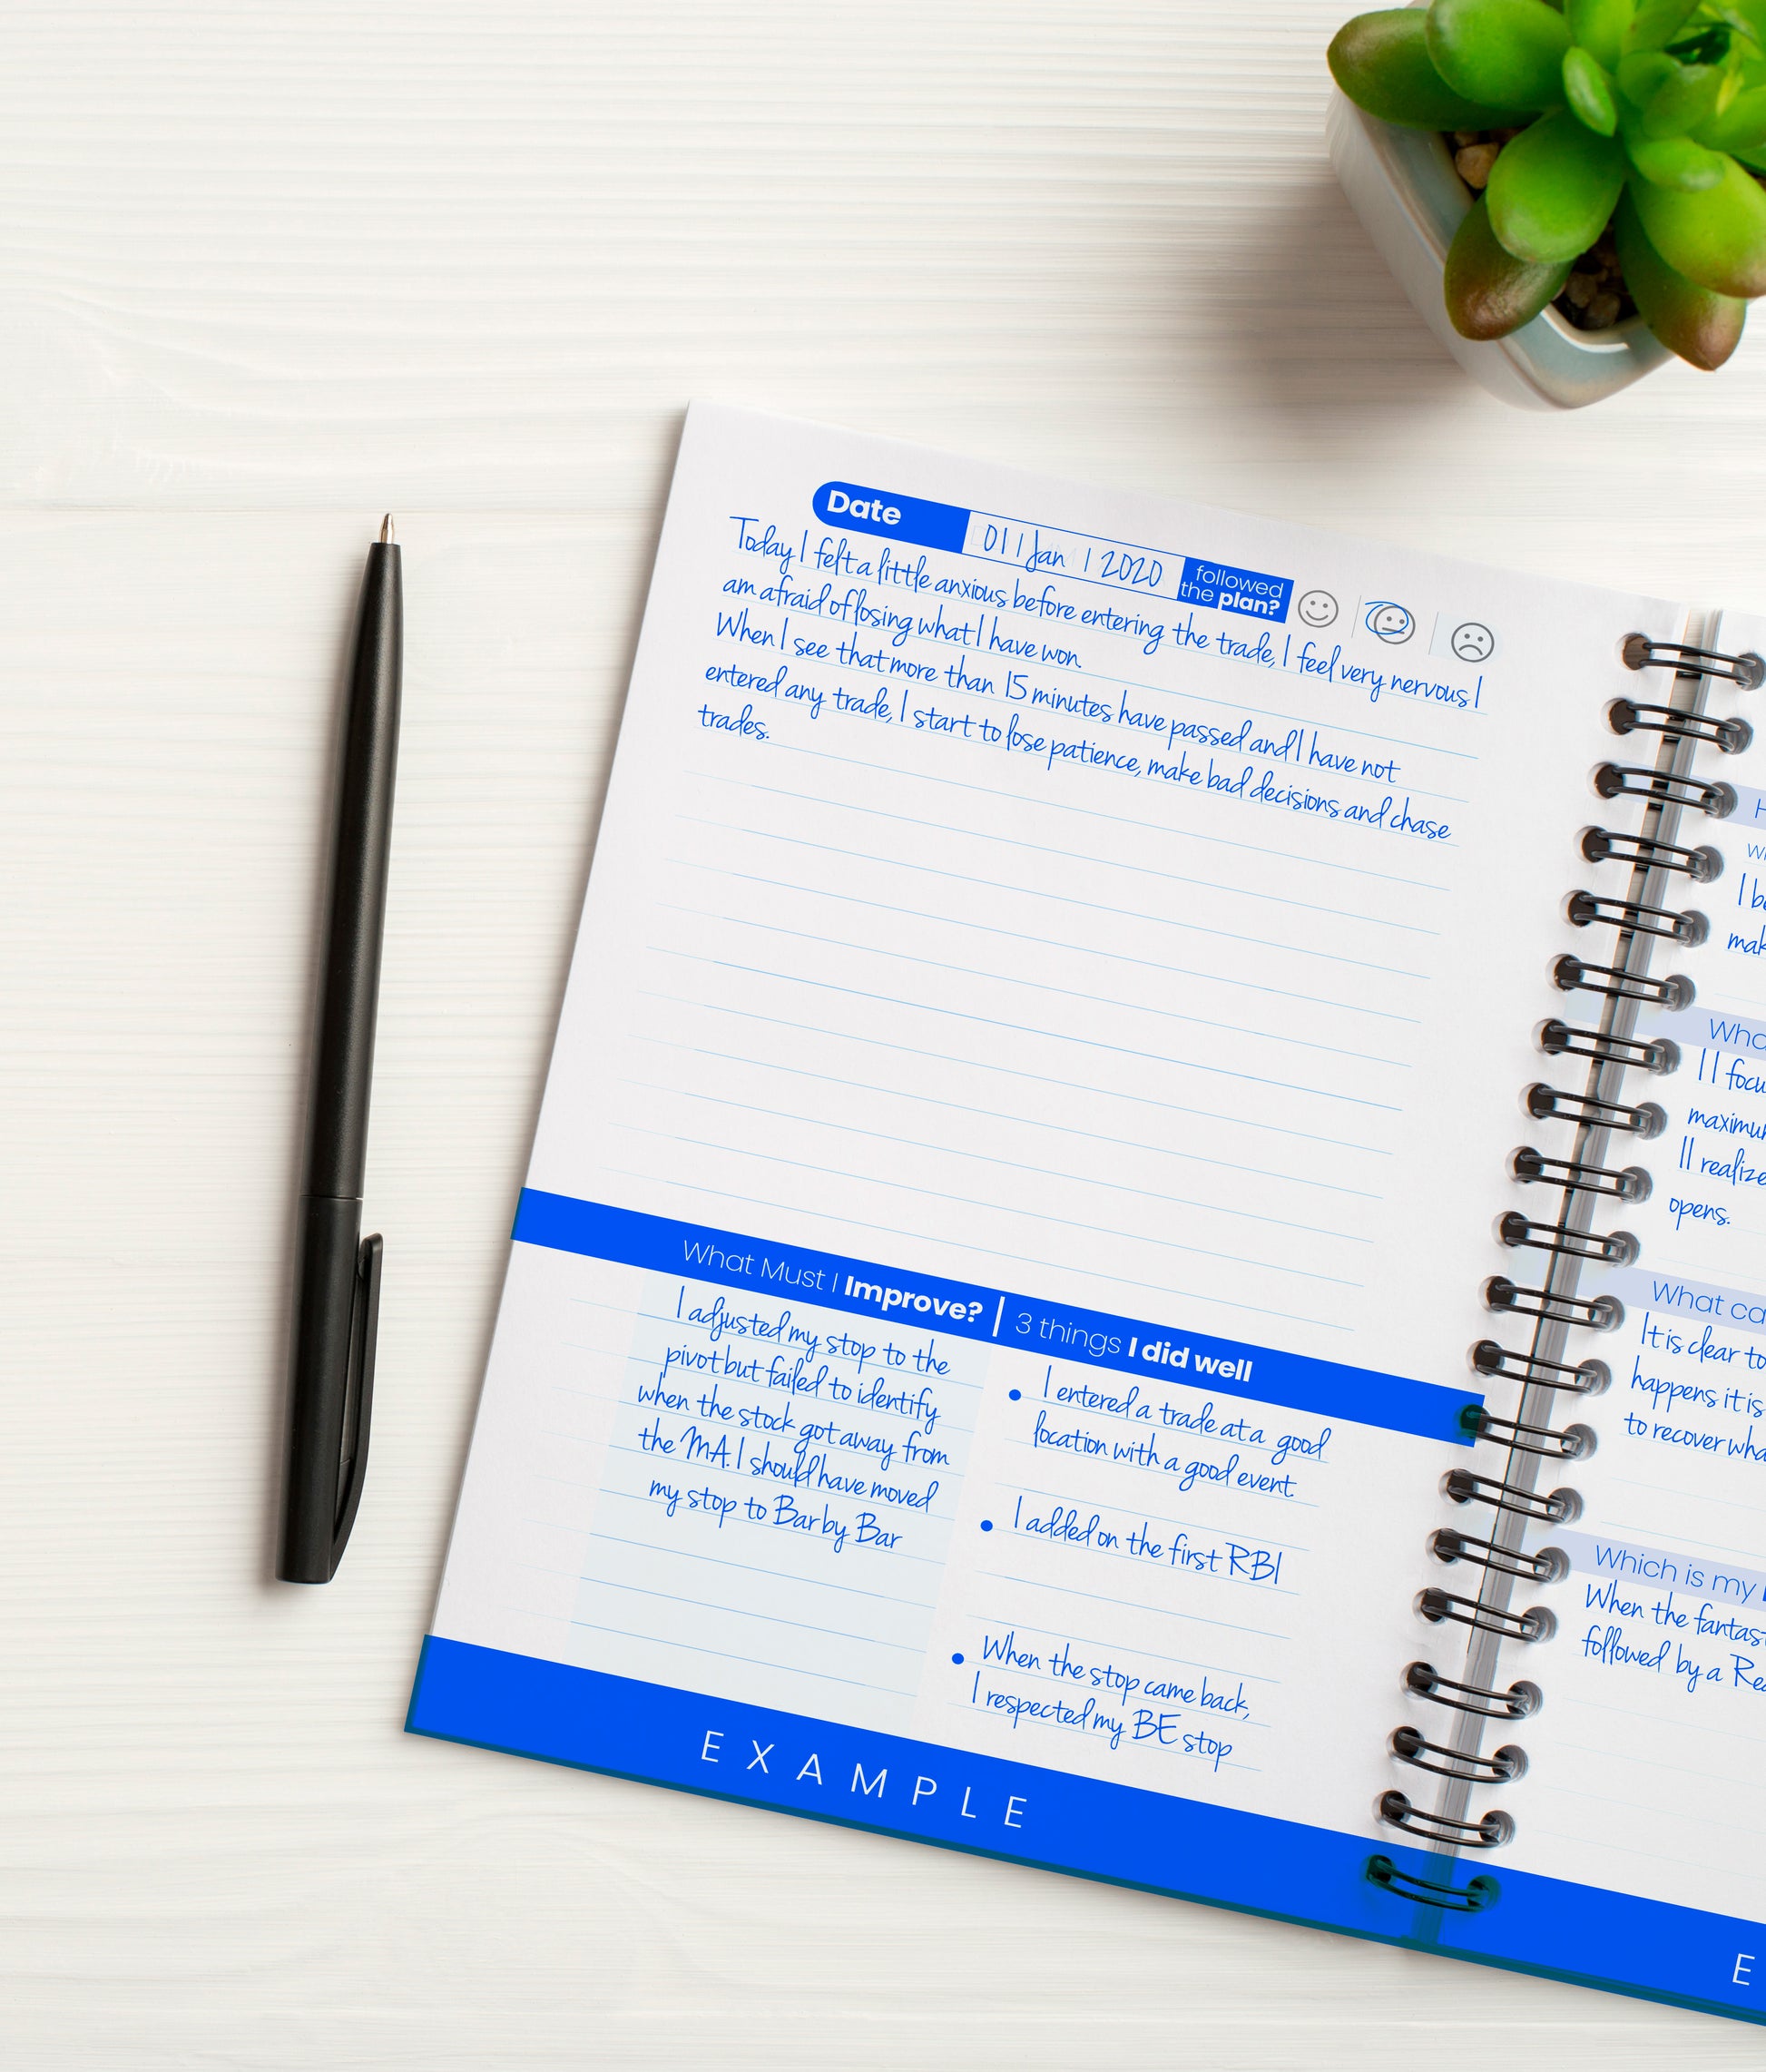 Date 01 | Jan | 2020 followed
the plan?
Today I felt a little anxious before entering the trade, I feel very nervous I
am afraid of losing what I have won.
When I see that more than 15 minutes have passed and I have not
entered any trade, I start to lose patience, make bad decisions and chase
trades.
What Must I Improve? | 3 things I did well
I adjusted my stop to the
pivot but failed to identify
when the stock got away from
the MA. I should have moved
my stop to Bar by Bar
• I entered a trade at a good
location with a good event.
• I added on the first RBI
• When the stop came back,
I respected my BE stop
EXAMPLE
I be
mak
11 focu
maximu
11 realize
opens.
What ca
It is clear to
happens it is
to recover wha
Which is my
When the fantas
followed by a Re
E